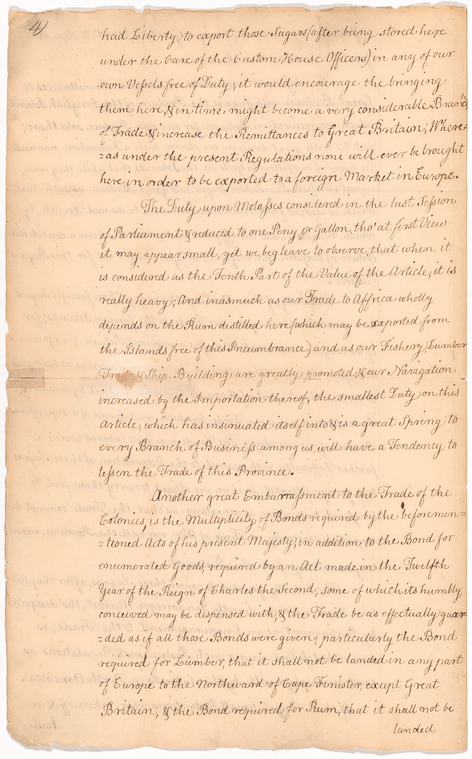 4)
had Liberty to export those Sugars (after being stored here
under the Care of the Custom House Officers) in any of our
own Vessels free of Duty, it would encourage the bringing
them here, & in time might become a very considerable Branch
of Trade & increase the Remittances to Great Britain; Where=
=as under the present Regulations none will ever be brought
here in order to be exported to a foreign Market in Europe.
The Duty upon Molasses considered in the last Session
of Parliament & reduced to one Peny pr Gallon, tho' at first View
it may appear small, yet we beg leave to observe, that when it
is considered as the Tenth Part of the Value of the Article, it is
really heavy; And inasmuch as our Trade to Affrica wholly
depends on the Rum distilled here (which may be exported from
the Islands free of this Incumbrance) and as our Fishery, Lumber
Trade & Ship Building are greatly promoted, & our Navigation
increased by the Importation thereof, the smallest Duty on this
Article, which has insinuated itself into & is a great Spring to
every Branch of Business among us, will have a Tendency to
lessen the Trade of this Province.
Another great Embarrassment to the Trade of the
Colonies, is the Multiplicity of Bonds required by the beforemen=
=tioned Acts of his present Majesty, in addition to the Bond for
enumerated Goods, required by an Act made in the Twelfth
Year of the Reign of Charles the Second; some of which its humbly
conceived may be dispensed with, & the Trade be as effectually guar=
=ded as if all those Bonds were given; particularly the Bond
required for Lumber, that it shall not be landed in any part
of Europe to the Northward of Cape Finister, except Great
Britain; & the Bond required for Rum, that it shall not be
landed